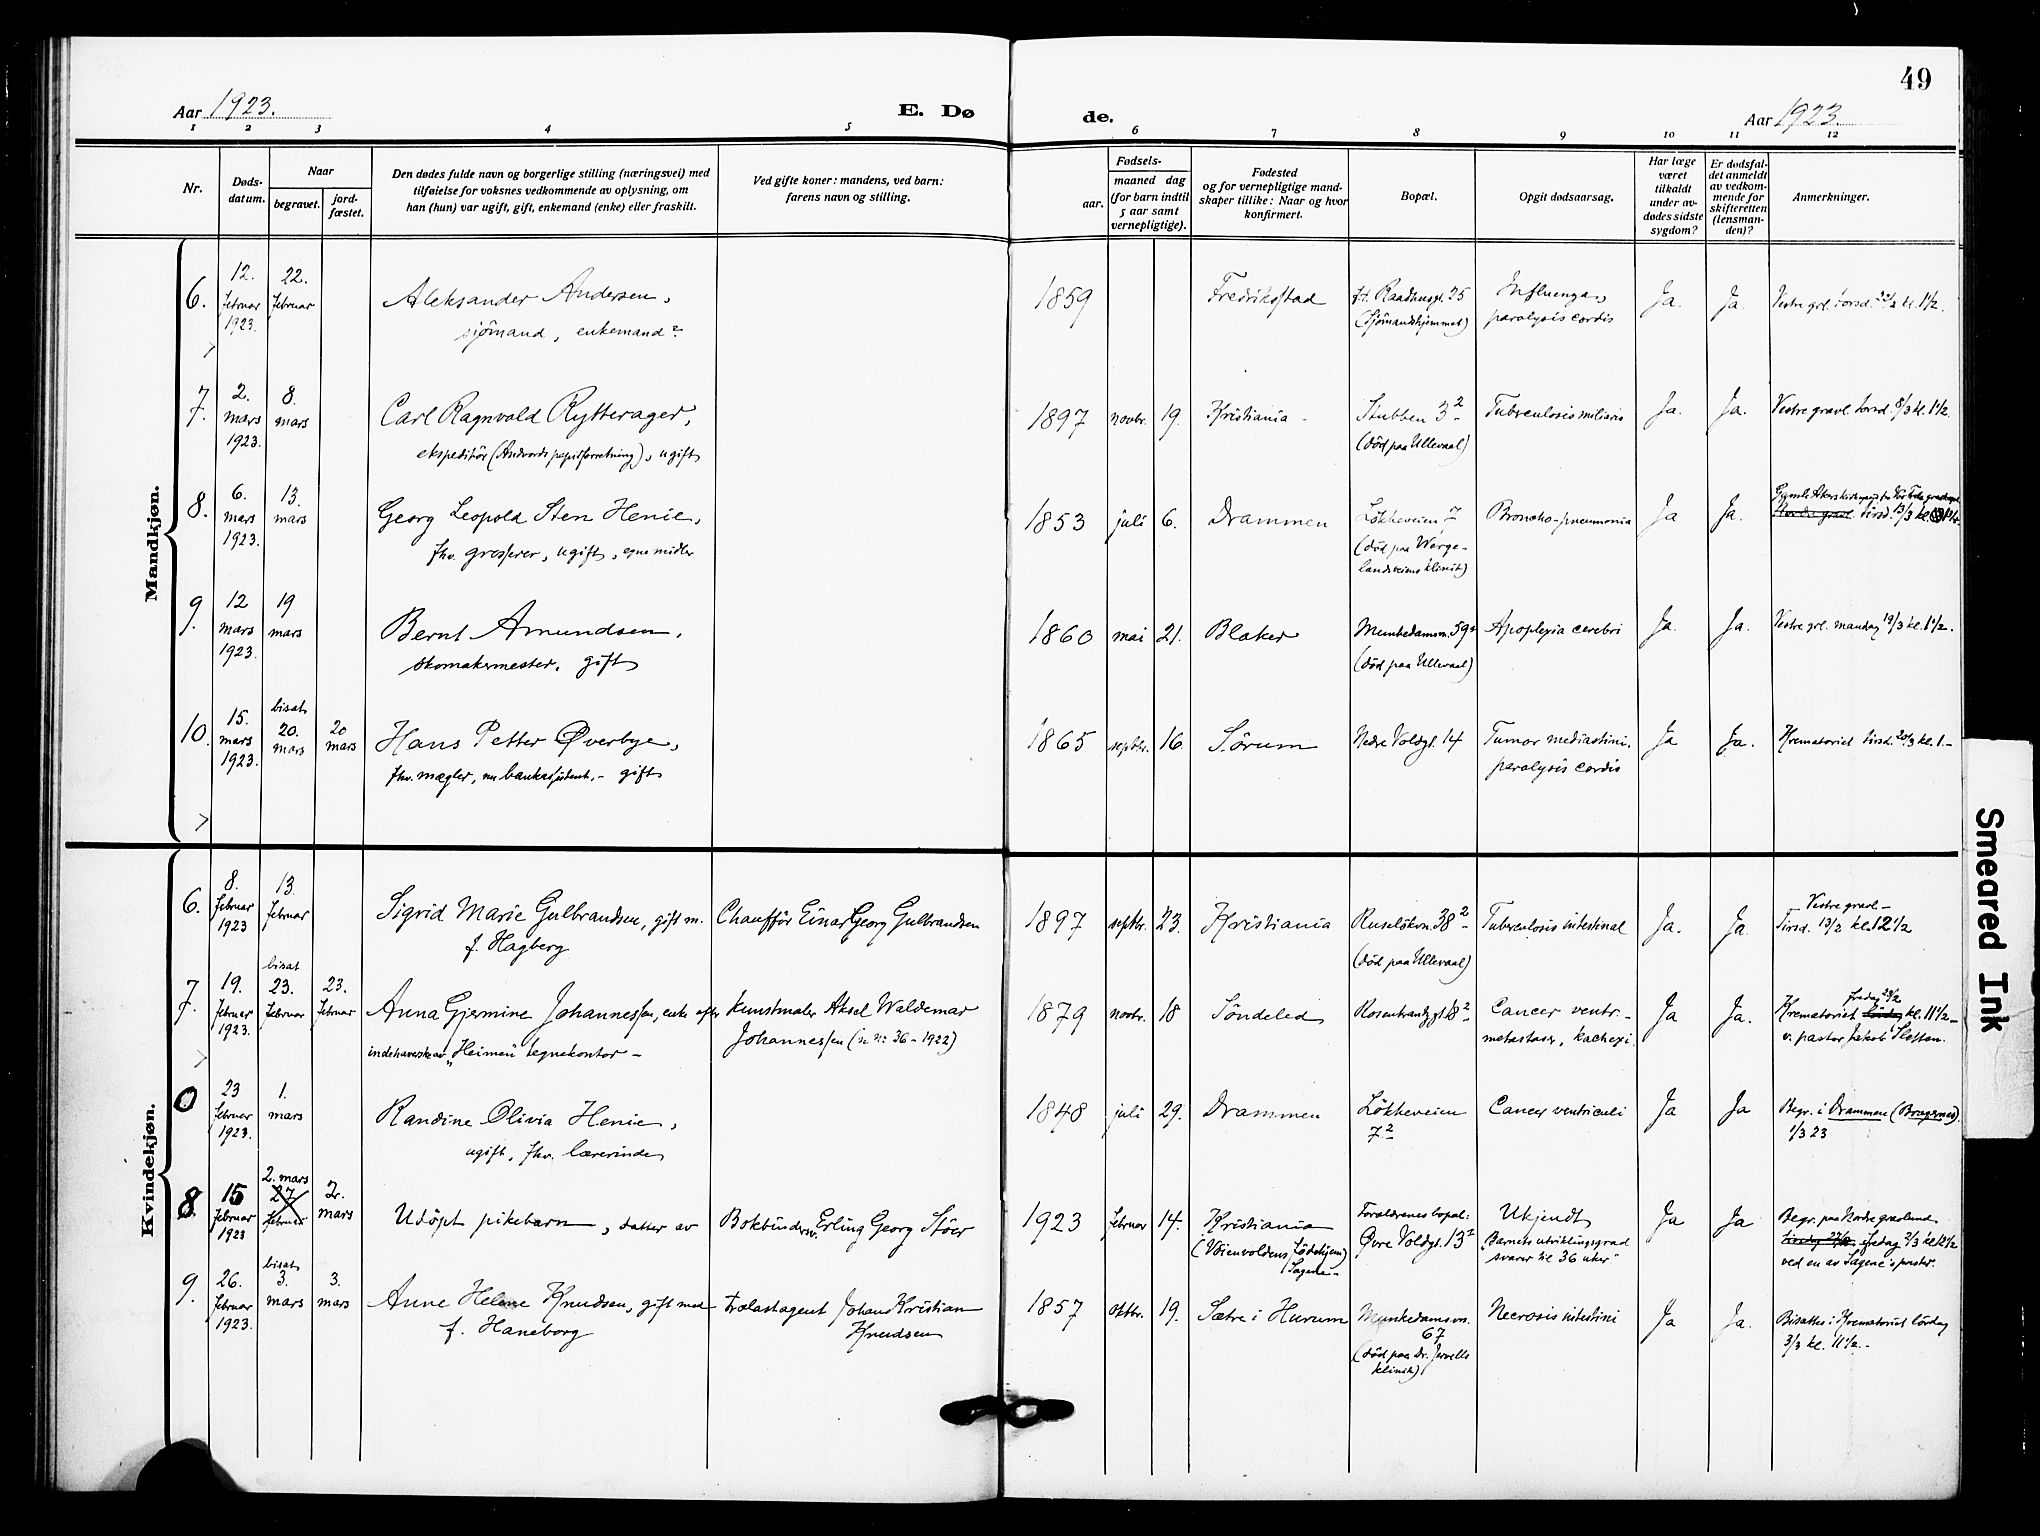 49
Aar 1923.
E. Døde.
Aar 1923.
1 2 3 4 5 6 7 8 9 10 11 12
Nr.
Døds-
datum.
Naar
begravet.
jord-
fæstet.
Den dødes fulde navn og borgerlige stilling (næringsvei) med
tilføielse for voksnes vedkommende av oplysning, om
han (hun) var ugift, gift, enkemand (enke) eller fraskilt.
Ved gifte koner: mandens, ved barn:
farens navn og stilling.
Fødsels-
aar.
maaned dag
(for barn indtil
5 aar samt
vernepligtige).
Fødested
og for vernepligtige mand-
skaper tillike: Naar og hvor
konfirmert.
Bopæl.
Opgit dødsaarsag.
Har læge
været
tilkaldt
under av-
dødes sidste
sygdom?
Er dødsfal-
det anmeldt
av vedkom-
mende for
skifteretten
(lensman-
den)?
Anmerkninger.
Mandkjøn.
6.
12.
februar
1923.
22.
februar
Aleksander Andersen,
sjömand, enkemand?
1859
Fredrikstad
f.t. Raadhusgt. 25
(Sjömandshjemmet)
Influenza,
paralysis cordis
Ja.
Ja.
Vestre grl. torsd. 22/2 kl. 1 1/2.
7.
2.
mars
1923.
8.
mars
Carl Ragnvald Rytterager,
ekspeditör (Andvords papirforretning), ugift
1897 novbr. 19.
Kristiania
Stubben 3 2
(död paa Ullevaal)
Tuberculosis miliaris
Ja.
Ja.
Vestre gravl. torsd. 8/3 kl. 1 1/2.
8.
6.
mars
1923.
13.
mars
Georg Leopold Sten Henie,
fhv. grosserer, ugift, egne midler
1853 juli 6.
Drammen
Lökkeveien 7
(död paa Werge-
landsveiens klinik)
Broncho-pneumonia
Ja
Ja.
Nordre gravl. tirsd. 13/3 kl.
9.
12
mars
1923.
19
mars
Bernt Amundsen,
skomakermester, gift
1860 mai 21.
Blaker
Munkedamsvn. 59
(död paa Ullevaal)
Apoplexia cerebri
Ja.
Ja.
Vestre grl. mandag 19/3 kl. 1 1/2.
10.
15.
mars
1923.
bisat
20.
mars
20
mars
Hans Petter Øverbye,
fhv. mægler, nu bankassistent. - gift
1865 septbr. 16.
Sørum
Nedre Voldgt. 14
Tumor mediastini.
paralysis cordis
Ja
Ja.
Krematoriet tirsd. 20/3 kl. 1.-
Kvindekjøn.
6.
8.
februar
1923
13.
februar
Sigrid Marie Gulbrandsen, gift m.
f. Hagberg
Chaufför Einar Georg Gulbrandsen
1897 septbr. 23.
Kristiania
Ruselökvn. 38 2
(död paa Ullevaal)
Tuberculosis intestinal
Ja.
Ja.
Vestre gravl-
Tirsd. 13/2 kl. 12 1/2
7.
19.
februar
1923.
bisat
23.
februar
23.
februar
Anna Gjermine Johannessen, enke efter
indehaverske av "Heimen" tegnekontor -
kunstmaler Aksel Waldemar
Johannessen (se nr. 36 - 1922)
1879 novbr. 18
Söndeled
Rosenkrantzgt. 18 2
Cancer ventr. -
metastaser, kachexi.
Ja
Ja.
fredag 23/2
Krematoriet lördag kl. 11 1/2 -
v. pastor Jakob Sletten.
0
23
februar
1923.
1.
mars
Randine Olivia Henie,
ugift, fhv. lærerinde
1848 juli 29.
Drammen
Lökkeveien
7 2
Cancer ventriculi
Ja
Ja
Begr. i Drammen (Bragernes).
1/3 23
8
15
februar
1923
2. mars
27
februar
2.
mars
Udöpt pikebarn, datter av
Bokbindersv. Erling Georg Stöer
1923 februar 14.
Kristiania
(Vöienvoldens födehjem)
Sagene-
Forældrenes bopæl:
Øvre Voldgt. 13 2
Ukjendt
"Barnets utviklingsgrad
svarer til 36 uker"
Ja
Ja
Begr. paa Nordre gravlund
tirsdag 27/2 fredag 2/3 kl. 12 1/2
ved en av Sagene's pastor.
9.
26.
februar
1923.
bisat
3.
mars
3.
mars
Anne Helene Knudsen, gift med
f. Haneborg
trælastagent Johan Kristian
Knudsen
1857 oktbr. 19.
Sætre i Hurum
Munkedamsvn.
67
(död paa Dr. Jervells
klinik)
Necrosis intestini
Ja
Ja.
Bisættes i Krematoriet lördag
3/3 kl. 11 1/2.-
Smeared Ink